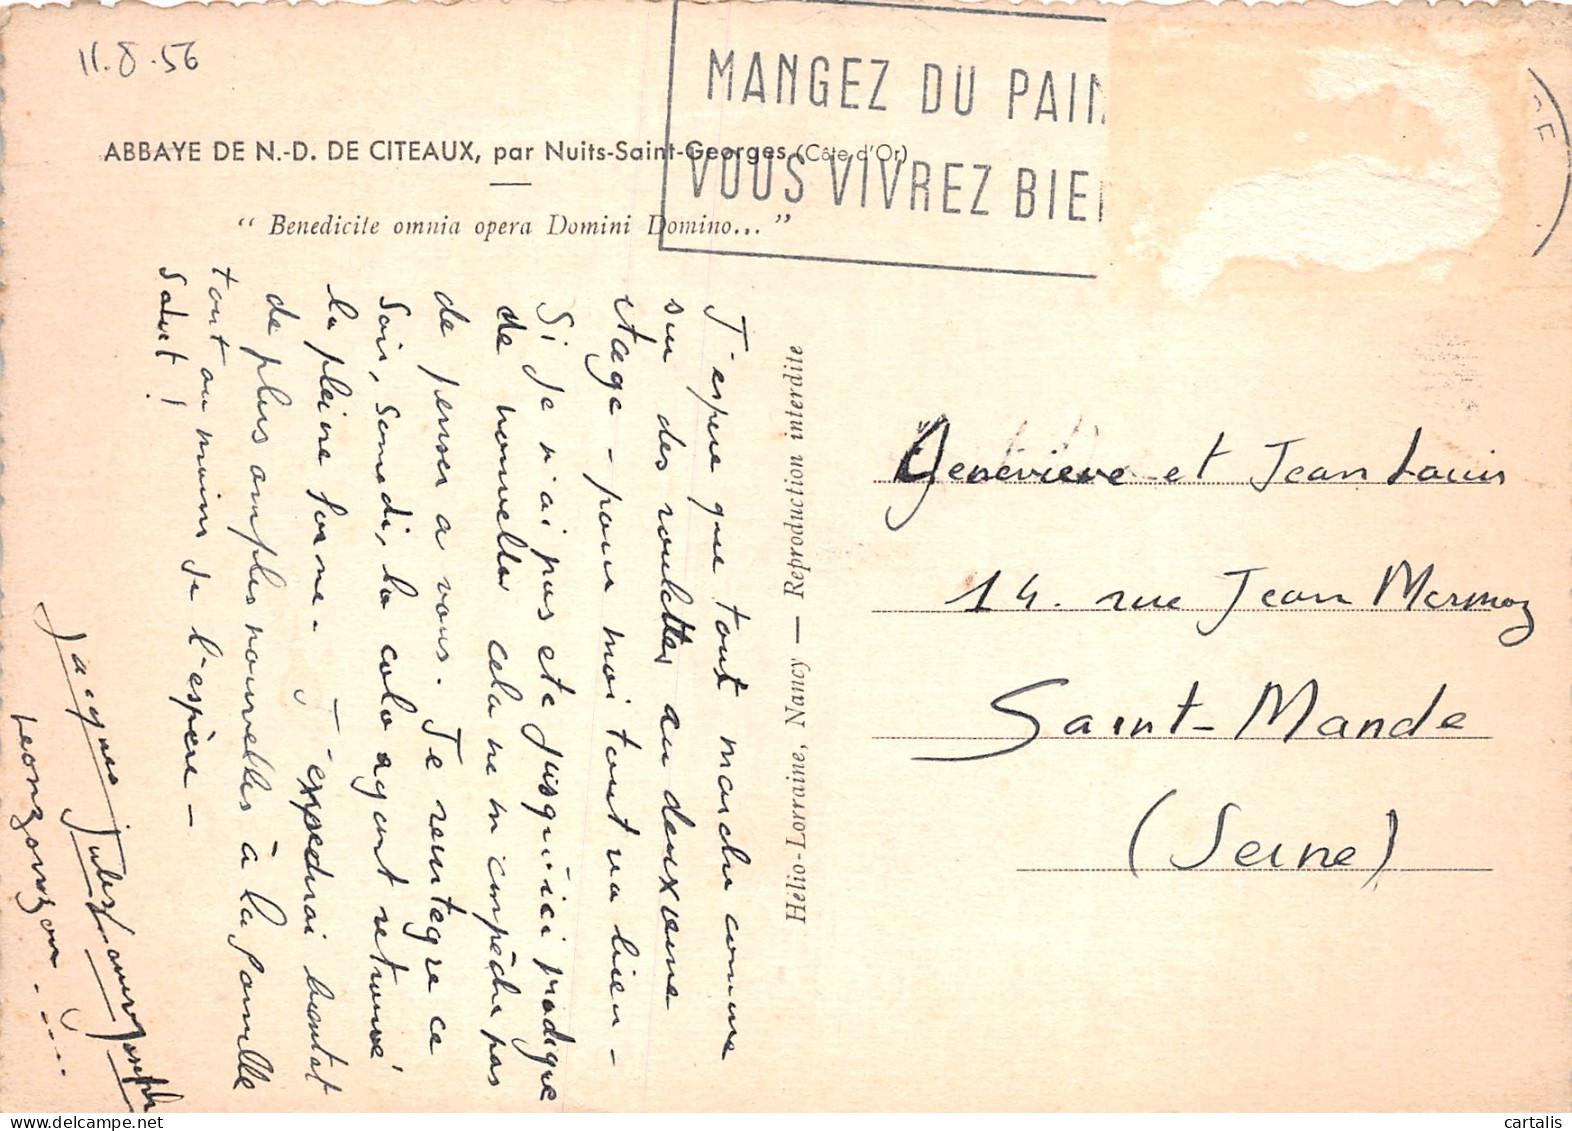 11.8.56
MANGEZ DU PAIN
VOUS VIVREZ BIEN
ABBAYE DE N.-D. DE CITEAUX, par Nuits-Saint-Georges (Côte d'Or)
" Benedicite omnia opera Domini Domino... "
J'espere que tout marche comme
sur des roulettes au deuxieme
etage - pour moi tout va bien -
Si je n'ai pas ete jusqu'ici prodigue
de nouvelles cela ne m'empêche pas
de penser a vous. Je reintegre ce
soir, samedi, la colo ayant retrouvé
la pleine forme. J'expedirai bientot
de plus amples nouvelles à la famille
tout au moins je l'espère -
Salut !
Jacques Jules
Joseph
Hélio-Lorraine, Nancy — Reproduction interdite
Genevieve et Jean Louis
14. rue Jean Mermoz
Saint-Mande
(Seine)
cartalis
www.delcampe.net